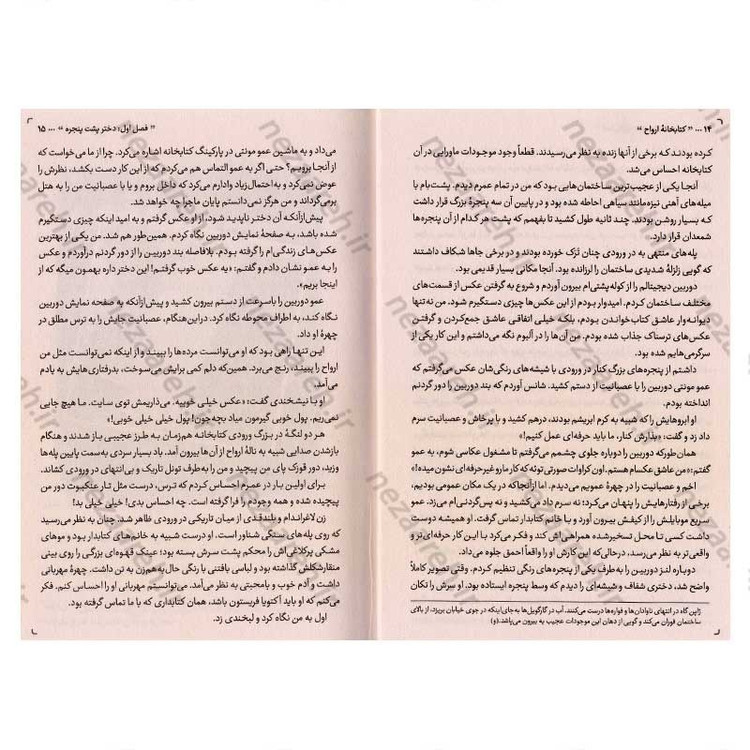 ۱۴ ... " کتابخانهٔ ارواح "
کرده بودند که برخی از آنها زنده به نظر می‌رسیدند. قطعاً وجود موجودات ماورایی در آن
کتابخانه احساس می‌شد.
آنجا یکی از عجیب‌ترین ساختمان‌هایی بود که من در تمام عمرم دیدم. پشت‌بام با
میله‌های آهنی نیزه‌مانند سیاهی احاطه شده بود و در پایین آن سه پنجرهٔ بزرگ قرار داشت
که بسیار روشن بودند. چند ثانیه طول کشید تا بفهمم که پشت هر کدام از آن پنجره‌ها
شمعدان قرار دارد.
پله‌های منتهی به در ورودی چنان تَرَک خورده بودند و در برخی جاها شکاف داشتند
که گویی زلزلهٔ شدیدی ساختمان را لرزانده بود. آنجا مکانی بسیار قدیمی بود.
دوربین دیجیتالم را از کوله‌پشتی‌ام بیرون آوردم و شروع به گرفتن عکس از قسمت‌های
مختلف ساختمان کردم. امیدوار بودم از این عکس‌ها چیزی دستگیرم شود. من نه‌تنها
دیوانه‌وار عاشق کتاب‌خواندن بودم، بلکه خیلی اتفاقی عاشق جمع‌کردن و گرفتن
عکس‌های ترسناک جذاب شده بودم. من آن‌ها را در آلبوم نگه می‌داشتم و این کار یکی از
سرگرمی‌هایم شده بود.
داشتم از پنجره‌های بزرگ کنار در ورودی با شیشه‌های رنگی‌شان عکس می‌گرفتم که
عمو مونتی دوربین را با عصبانیت از دستم کشید. شانس آوردم که بند دوربین را دور گردنم
انداخته بودم.
او ابروهایش را که شبیه به کرم ابریشم بودند، درهم کشید و با پرخاش و عصبانیت سرم
داد زد و گفت: «بذارش کنار، ما باید حرفه‌ای عمل کنیم!»
همان‌طور‌که دوربین را دوباره جلوی چشمم می‌گرفتم تا مشغول عکاسی شوم، به عمو
گفتم: «من عاشق عکسام هستم. اون کراوات صورتی توئه که کار مارو غیرحرفه‌ای نشون میده!»
اخم و عصبانیت را در چهرهٔ عمویم می‌دیدم. اما ازآنجاکه در یک مکان عمومی بودیم،
برخی از رفتارهایش را پنهان می‌کرد؛ نه سرم داد می‌کشید و نه پس‌گردنی‌ام می‌زد. عمو
سریع موبایلش را از کیفش بیرون آورد و با خانم کتابدار تماس گرفت. او همیشه دوست
داشت کسی تا محل تسخیرشده همراهی‌اش کند و فکر می‌کرد با این کار حرفه‌ای‌تر و
واقعی‌تر به نظر می‌رسد، درحالی‌که این کارش او را واقعاً احمق جلوه می‌داد.
دوباره لنز دوربین را به‌طرف یکی از پنجره‌های رنگی تنظیم کردم. وقتی تصویر کاملاً
واضح شد، دختری شفاف و شیشه‌ای را دیدم که وسط پنجره ایستاده بود. او سرش را تکان
ژاپن گاه در انتهای ناودان‌ها و فواره‌ها درست می‌کنند. آب در گارگویل‌ها به‌جای‌اینکه در جوی خیابان بریزد، از بالای
ساختمان فوران می‌کند و گویی از دهان این موجودات عجیب به بیرون می‌پاشد. (و)
" فصل اول؛ دختر پشت پنجره " ... ۱۵
می‌داد و به ماشین عمو مونتی در پارکینگ کتابخانه اشاره می‌کرد. چرا از ما می‌خواست که
از آنجا برویم؟ حتی اگر به عمو التماس هم می‌کردم که از این کار دست بکشد، نظرش را
عوض نمی‌کرد و به‌احتمال‌زیاد وادارم می‌کرد که داخل بروم و یا با عصبانیت من را به هتل
برمی‌گرداند و من هرگز نمی‌دانستم پایان ماجرا چه خواهد شد.
پیش‌ازآنکه آن دختر ناپدید شود، از او عکس گرفتم و به امید اینکه چیزی دستگیرم
شده باشد، به صفحهٔ نمایش دوربین نگاه کردم. همین‌طور هم شد. من یکی از بهترین
عکس‌های زندگی‌ام را گرفته بودم. بلافاصله بند دوربین را از دور گردنم درآوردم و عکس
را به عمو نشان دادم و گفتم: «یه عکس خوب گرفتم! این دختر داره بهمون میگه که از
اینجا بریم».
عمو دوربین را با سرعت از دستم بیرون کشید و پیش‌ازآنکه به صفحه نمایش دوربین
نگاه کند، به اطراف محوطه نگاه کرد. دراین‌هنگام، عصبانیت جایش را به ترس مطلق در
چهرهٔ او داد.
این تنها راهی بود که او می‌توانست مرده‌ها را ببیند و از اینکه نمی‌توانست مثل من
ارواح را ببیند، رنج می‌برد. همین‌که دلم کمی برایش می‌سوخت، بدرفتاری‌هایش به یادم
می‌آمد.
او با نیشخندی گفت: «عکس خیلی خوبیه. می‌ذاریمش توی سایت. ما هیچ جایی
نمی‌ریم. پول خوبی گیرمون میاد بچه‌جون! پول خیلی خیلی خوبی!»
هر دو لنگهٔ در بزرگ ورودی کتابخانه هم‌زمان به طرز عجیبی باز شدند و هنگام
بازشدن صدایی شبیه به نالهٔ ارواح از آن‌ها بیرون آمد. باد بسیار سردی به‌سمت پایین پله‌ها
وزید، دور قوزک پای من پیچید و من را به‌طرف تونل تاریک و بی‌انتهای در ورودی کشاند.
برای اولین بار در عمرم احساس کردم که ترس، درست مثل تار عنکبوت دور من
پیچیده شده و همه وجودم را فرا گرفته است. چه احساس بدی! خیلی خیلی بد!
زن لاغراندام و بلندقدی از میان تاریکی در ورودی ظاهر شد. چنان به نظر می‌رسید
که روی پله‌های سنگی شناور است. او درست شبیه به خانم‌های کتابدار بود و موهای
مشکی پرکلاغی‌اش را محکم پشت سرش بسته بود؛ عینک قهوه‌ای بزرگی را روی بینی
منقارشکلش گذاشته بود و لباسی بافتنی با رنگی خال‌به‌هم‌زن به تن داشت. چهرهٔ مهربانی
داشت و آدم خوب و بامحبتی به نظر می‌آمد. می‌توانستم مهربانی او را احساس کنم. فکر
می‌کنم که او باید آکتویا فریستون باشد، همان کتابداری که با ما تماس گرفته بود.
اول به من نگاه کرد و لبخندی زد.
nezareh.ir